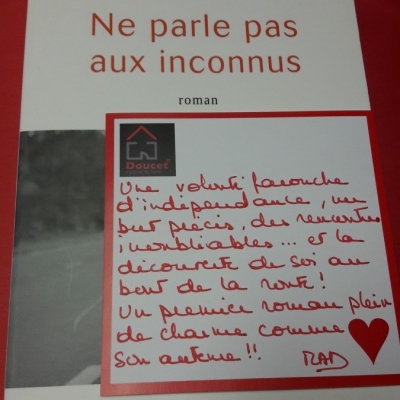 Ne parle pas
aux inconnus
roman
Doucet
Une volonté farouche
d'indépendance, un
but précis, des rencontres
inoubliables... et la
découverte de soi au
bout de la route!
Un premier roman plein
de charme comme
son auteure!!
MAD